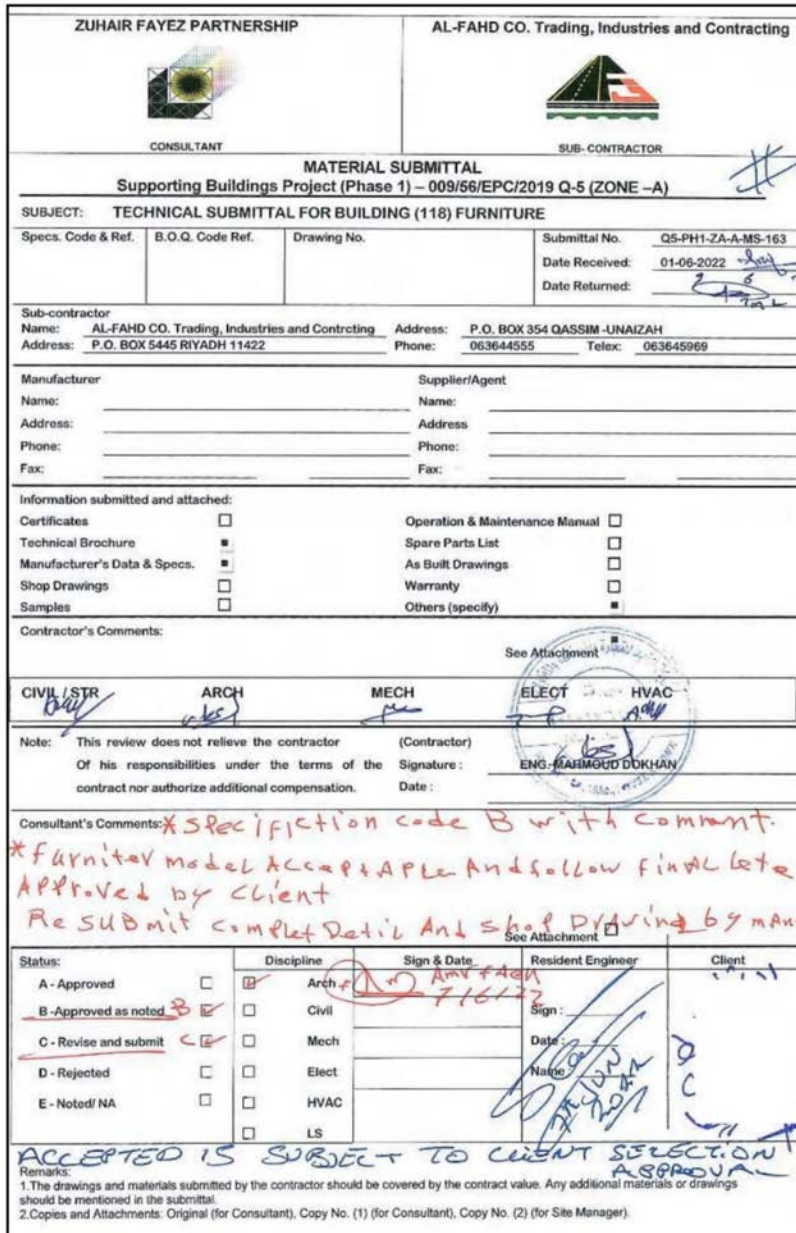 ZUHAIR FAYEZ PARTNERSHIP
CONSULTANT
AL-FAHD CO. Trading, Industries and Contracting
SUB- CONTRACTOR
MATERIAL SUBMITTAL
Supporting Buildings Project (Phase 1) – 009/56/EPC/2019 Q-5 (ZONE –A)
SUBJECT: TECHNICAL SUBMITTAL FOR BUILDING (118) FURNITURE
Specs. Code & Ref. B.O.Q. Code Ref. Drawing No. Submittal No. Q5-PH1-ZA-A-MS-163
Date Received: 01-06-2022
Date Returned:
Sub-contractor
Name: AL-FAHD CO. Trading, Industries and Contrcting Address: P.O. BOX 354 QASSIM -UNAIZAH
Address: P.O. BOX 5445 RIYADH 11422 Phone: 063644555 Telex: 063645969
Manufacturer Supplier/Agent
Name: Name:
Address: Address
Phone: Phone:
Fax: Fax:
Information submitted and attached:
Certificates Operation & Maintenance Manual
Technical Brochure Spare Parts List
Manufacturer's Data & Specs. As Built Drawings
Shop Drawings Warranty
Samples Others (specify)
Contractor's Comments:
See Attachment
CIVIL / STR ARCH MECH ELECT HVAC
Note: This review does not relieve the contractor (Contractor)
Of his responsibilities under the terms of the Signature : ENG.-MAHMOUD DOKHAN
contract nor authorize additional compensation. Date :
Consultant's Comments: * Specifiction code B with Commant.
* Furniter model AcceptAple And follow final
Approved by Client
ReSUBmit Complet Detil And Shop Drawing by
See Attachment
Status: Discipline Sign & Date Resident Engineer Client
A - Approved Arch
7/6/22
B -Approved as noted B Civil Sign :
C - Revise and submit C Mech Date :
D - Rejected Elect Name
E - Noted/ NA HVAC
LS
ACCEPTED IS SUBJECT TO CLIENT SELECTION
APPROVAL
Remarks:
1.The drawings and materials submitted by the contractor should be covered by the contract value. Any additional materials or drawings
should be mentioned in the submittal.
2.Copies and Attachments: Original (for Consultant), Copy No. (1) (for Consultant), Copy No. (2) (for Site Manager).